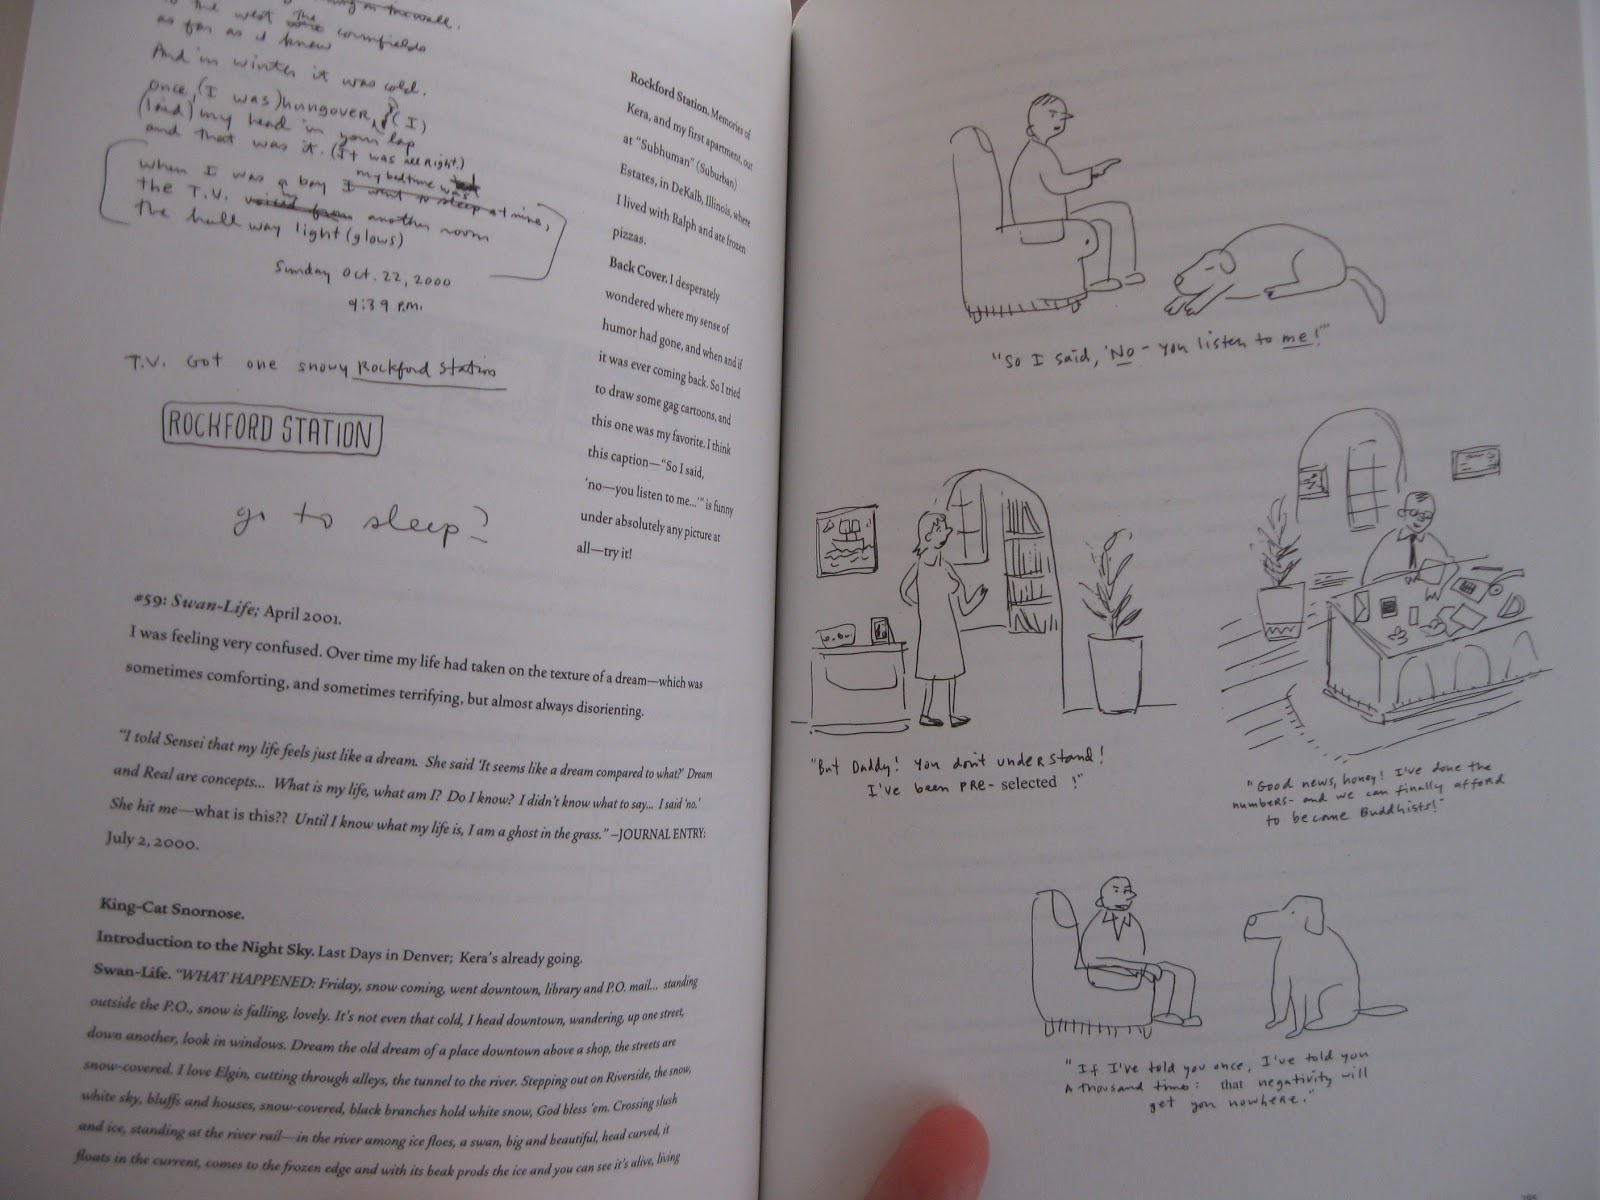 to the west the cornfields
as far as I knew
And in winter it was cold.
once, (I was) hungover, (I)
(laid) my head in your lap
and that was it. (It was all right)
when I was a boy my bedtime was
I went to sleep at nine,
the T.V. voiced from another room
the hall way light (glows)
Sunday Oct. 22, 2000
9:39 P.M.
T.V. Got one snowy Rockford Station
ROCKFORD STATION
go to sleep?
Rockford Station. Memories of
Kera, and my first apartment, out
at "Subhuman" (Suburban)
Estates, in DeKalb, Illinois, where
I lived with Ralph and ate frozen
pizzas.
Back Cover. I desperately
wondered where my sense of
humor had gone, and when and if
it was ever coming back. So I tried
to draw some gag cartoons, and
this one was my favorite. I think
this caption—"So I said,
'no—you listen to me...'" is funny
under absolutely any picture at
all—try it!
#59: Swan-Life; April 2001.
I was feeling very confused. Over time my life had taken on the texture of a dream—which was
sometimes comforting, and sometimes terrifying, but almost always disorienting.
"I told Sensei that my life feels just like a dream. She said 'It seems like a dream compared to what?' Dream
and Real are concepts... What is my life, what am I? Do I know? I didn't know what to say... I said 'no.'
She hit me—what is this?? Until I know what my life is, I am a ghost in the grass." –JOURNAL ENTRY:
July 2, 2000.
King-Cat Snornose.
Introduction to the Night Sky. Last Days in Denver; Kera's already going.
Swan-Life. "WHAT HAPPENED: Friday, snow coming, went downtown, library and P.O. mail... standing
outside the P.O., snow is falling, lovely. It's not even that cold, I head downtown, wandering, up one street,
down another, look in windows. Dream the old dream of a place downtown above a shop, the streets are
snow-covered. I love Elgin, cutting through alleys, the tunnel to the river. Stepping out on Riverside, the snow,
white sky, bluffs and houses, snow-covered, black branches hold white snow, God bless 'em. Crossing slush
and ice, standing at the river rail—in the river among ice floes, a swan, big and beautiful, head curved, it
floats in the current, comes to the frozen edge and with its beak prods the ice and you can see it's alive, living
"So I said, 'No – you listen to me!'"
"But Daddy! You don't understand!
I've been PRE-selected!"
"Good news, honey! I've done the
numbers – and we can finally afford
to become Buddhists!"
"If I've told you once, I've told you
A thousand times: that negativity will
get you nowhere."